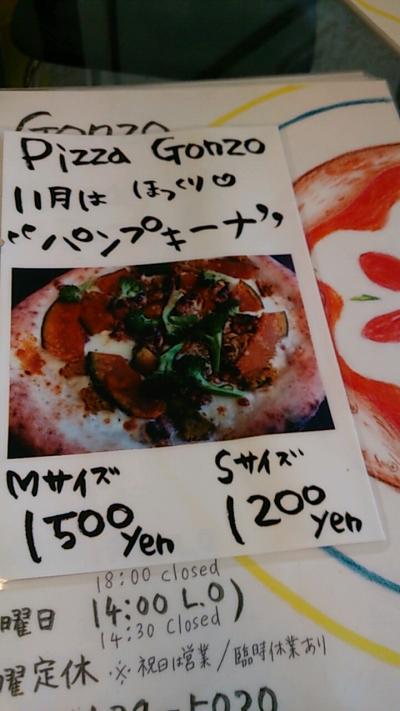 Gonzo
Pizza Gonzo
11月は ほっくり♡
"パンプキーナ"
Mサイズ
1500yen
Sサイズ
1200yen
18:00 closed
曜日 14:00 L.O)
14:30 closed
曜定休 ※祝日は営業/臨時休業あり
-5020